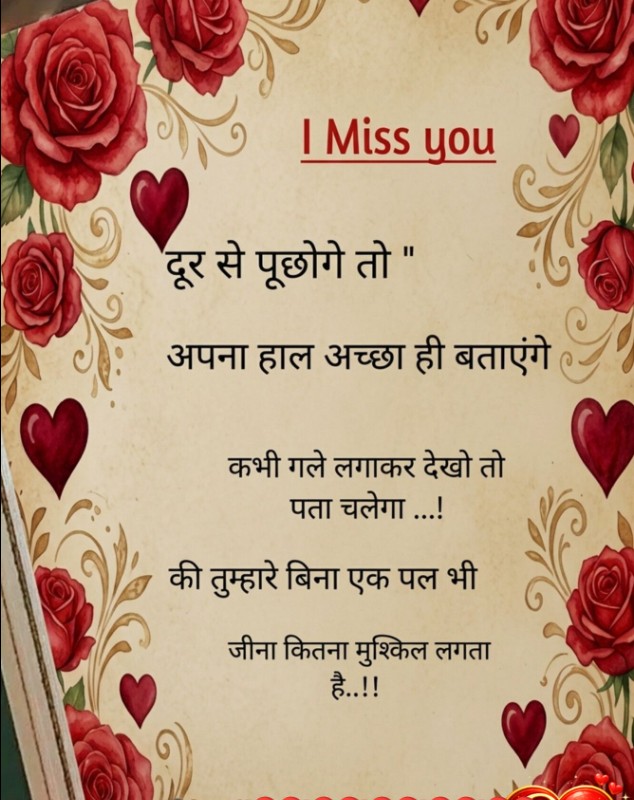 I Miss you
दूर से पूछोगे तो "
अपना हाल अच्छा ही बताएंगे
कभी गले लगाकर देखो तो
पता चलेगा ...!
की तुम्हारे बिना एक पल भी
जीना कितना मुश्किल लगता
है..!!